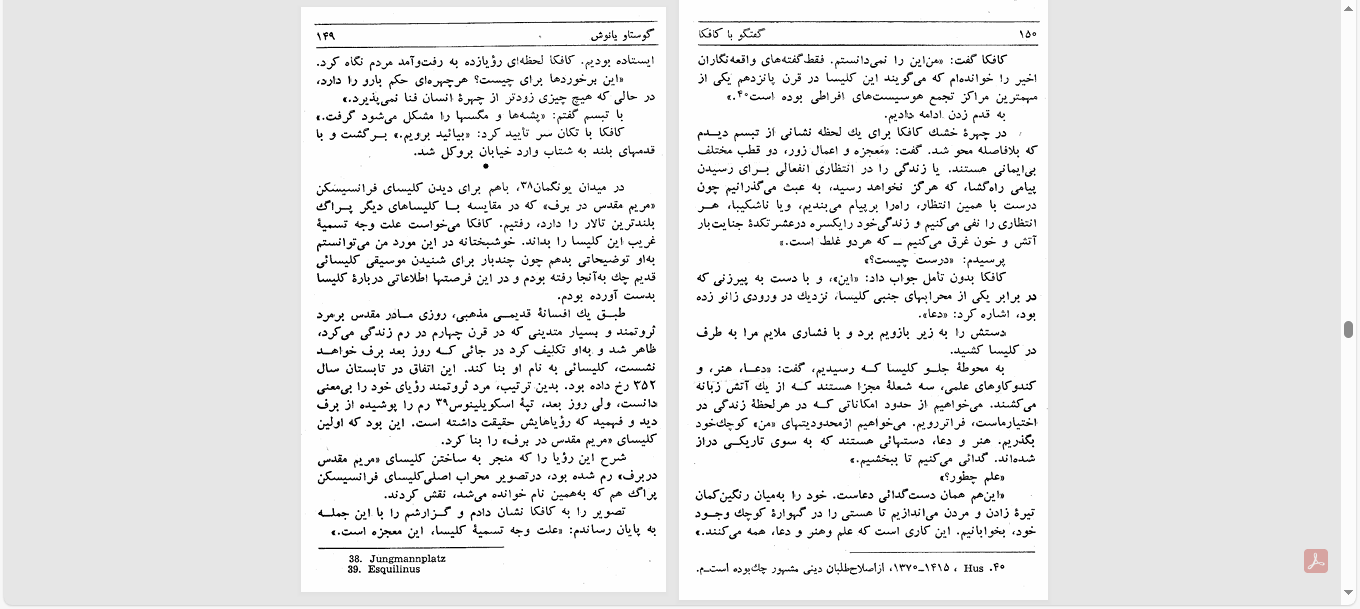 ۱۴۹ گوستاو یانوش
ایستاده بودیم. کافکا لحظه‌ای رؤیازده به رفت‌وآمد مردم نگاه کرد.
«این برخوردها برای چیست؟ هرچهره‌ای حکم بارو را دارد،
در حالی که هیچ چیزی زودتر از چهرهٔ انسان فنا نمی‌پذیرد.»
با تبسم گفتم: «پشه‌ها و مگسها را مشکل می‌شود گرفت.»
کافکا با تکان سر تأیید کرد: «بیائید برویم.» بـرگشت و با
قدمهای بلند به شتاب وارد خیابان بروکل شد.
●
در میدان یونگمان۳۸، باهم برای دیدن کلیسای فرانسیسکن
«مریم مقدس در برف» که در مقایسه بـا کلیساهای دیگر پـراگ
بلندترین تالار را دارد، رفتیم. کافکا می‌خواست علت وجه تسمیهٔ
غریب این کلیسا را بداند. خوشبختانه در این مورد من می‌توانستم
به‌او توضیحاتی بدهم چون چندبار برای شنیدن موسیقی کلیسائی
قدیم چك به‌آنجا رفته بودم و در این فرصتها اطلاعاتی دربارهٔ کلیسا
بدست آورده بودم.
طبـق یك افسانهٔ قدیمـی مذهبی، روزی مـادر مقدس برمرد
ثروتمند و بسیار متدینی که در قرن چهارم در رم زندگی می‌کرد،
ظاهر شد و به‌او تکلیف کرد در جائی کـه روز بعد برف خواهـد
نشست، کلیسائی به نام او بنا کند. این اتفاق در تابستان سال
۳۵۲ رخ داده بود. بدین ترتیب، مرد ثروتمند رؤیای خود را بی‌معنی
دانست، ولی روز بعد، تپهٔ اسکویلینوس۳۹ رم را پوشیده از برف
دید و فهمید که رؤیاهایش حقیقت داشته است. این بود که اولین
کلیسای «مریم مقدس در برف» را بنا کرد.
شرح این رؤیا را که منجر به ساختن کلیسای «مریم مقدس
دربرف» رم شده بود، درتصویر محراب اصلی‌کلیسای فرانسیسکن
پراگ هم که به‌همین نام خوانده می‌شد، نقش کردند.
تصویر را به کافکا نشان دادم و گـزارشم را با این جملـه
به پایان رساندم: «علت وجه تسمیهٔ کلیسا، این معجزه است.»
38. Jungmannplatz
39. Esquilinus
۱۵۰ گفتگو با کافکا
کافکا گفت: «من‌این را نمی‌دانستم. فقط‌گفته‌های واقعه‌نگاران
اخیر را خوانده‌ام که می‌گویند این کلیسا در قرن پانزدهم یکی از
مهمترین مراکز تجمع هوسیست‌های افراطی بوده است۴۰.»
به قدم زدن ادامه دادیم.
در چهرهٔ خشك کافکا برای یك لحظه نشانی از تبسم دیـدم
که بلافاصله محو شد. گفت: «معجزه و اعمال زور، دو قطب مختلف
بی‌ایمانی هستند. یا زندگی را در انتظاری انفعالی بـرای رسیدن
پیامی راه‌گشا، که هرگز نخواهد رسید، به عبث می‌گذرانیم چون
درست با همین انتظار، راه‌را برپیام می‌بندیم، ویا ناشکیبا، هـر
انتظاری را نفی می‌کنیم و زندگی‌خود رایکسره درعشرتکدهٔ جنایت‌بار
آتش و خون غرق می‌کنیم ــ که هردو غلط است.»
پرسیدم: «درست چیست؟»
کافکا بدون تأمل جواب داد: «این»، و با دست به پیرزنی که
در برابر یکی از محرابهای جنبی کلیسا، نزدیك در ورودی زانو زده
بود، اشاره کرد: «دعا».
دستش را به زیر بازویم برد و با فشاری ملایم مرا به طرف
در کلیسا کشید.
به محوطهٔ جلـو کلیسا کـه رسیدیم، گفت: «دعـا، هنر، و
کندوکاوهای علمی، سه شعلهٔ مجزا هستند کـه از یك آتش زبانه
می‌کشند. می‌خواهیم از حدود امکاناتی کـه در هرلحظهٔ زندگی در
اختیارماست، فراتررویم. می‌خواهیم ازمحدودیتهای «من» کوچك‌خود
بگذریم. هنر و دعا، دستهائی هستند که به سوی تاریکـی دراز
شده‌اند. گدائی می‌کنیم تا ببخشیم.»
«علم چطور؟»
«این‌هم همان دست‌گدائی دعاست. خود را به‌میان رنگین‌کمان
تیرهٔ زادن و مردن می‌اندازیم تا هستی را در گهوارهٔ کوچك وجـود
خود، بخوابانیم. این کاری است که علم وهنر و دعا، همه می‌کنند.»
۴۰. Hus ، ۱۴۱۵ــ۱۳۷۰، ازاصلاح‌طلبان دینی مشهور چك‌بوده است‌ـم.